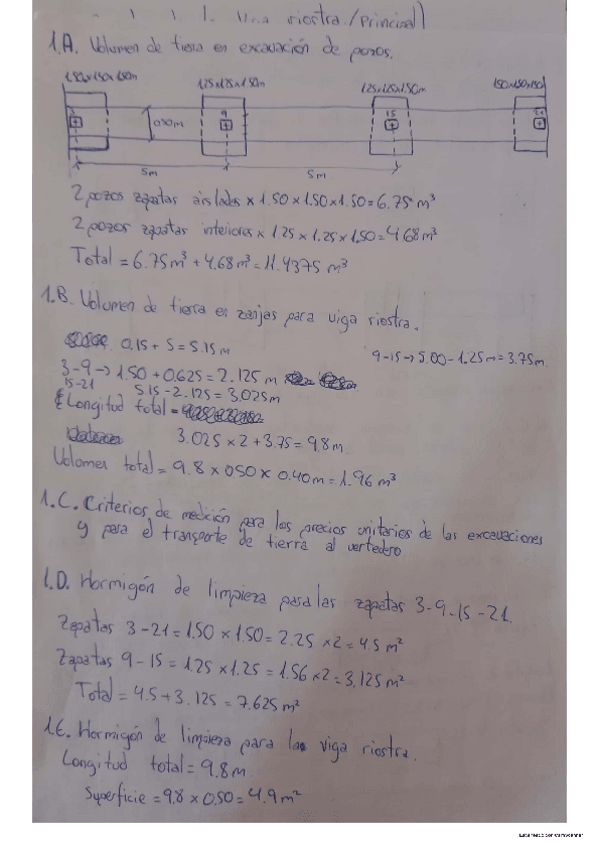 viga riostra. (Principal)
1.A. Volumen de tierra en excavación de pozos.
1.50x1.50x1.50m 1.25x1.25x1.50m 1.25x1.25x1.50m 1.50x1.50x1.50
3 9 15 21
0.50m
5m 5m
2 pozos zapatas aisladas x 1.50 x 1.50 x 1.50 = 6.75 m³
2 pozos zapatas interiores x 1.25 x 1.25 x 1.50 = 4.68 m³
Total = 6.75 m³ + 4.68 m³ = 11.4375 m³
1.B. Volumen de tierra en zanjas para viga riostra.
0.15 + 5 = 5.15 m 9-15 → 5.00 - 1.25m = 3.75m.
3-9 → 1.50 + 0.625 = 2.125 m
15-21 5.15 - 2.125 = 3.025m
Longitud total =
3.025 x 2 + 3.75 = 9.8 m
Volumen total = 9.8 x 0.50 x 0.40m = 1.96 m³
1.C. Criterios de medición para los precios unitarios de las excavaciones
y para el transporte de tierra al vertedero
1.D. Hormigón de limpieza para las zapatas 3-9-15-21.
Zapatas 3-21 = 1.50 x 1.50 = 2.25 x 2 = 4.5 m²
Zapatas 9-15 = 1.25 x 1.25 = 1.56 x 2 = 3,125 m²
Total = 4.5 + 3.125 = 7.625 m²
1.E. Hormigón de limpieza para la viga riostra.
Longitud total = 9.8 m.
Superficie = 9.8 x 0.50 = 4.9 m²